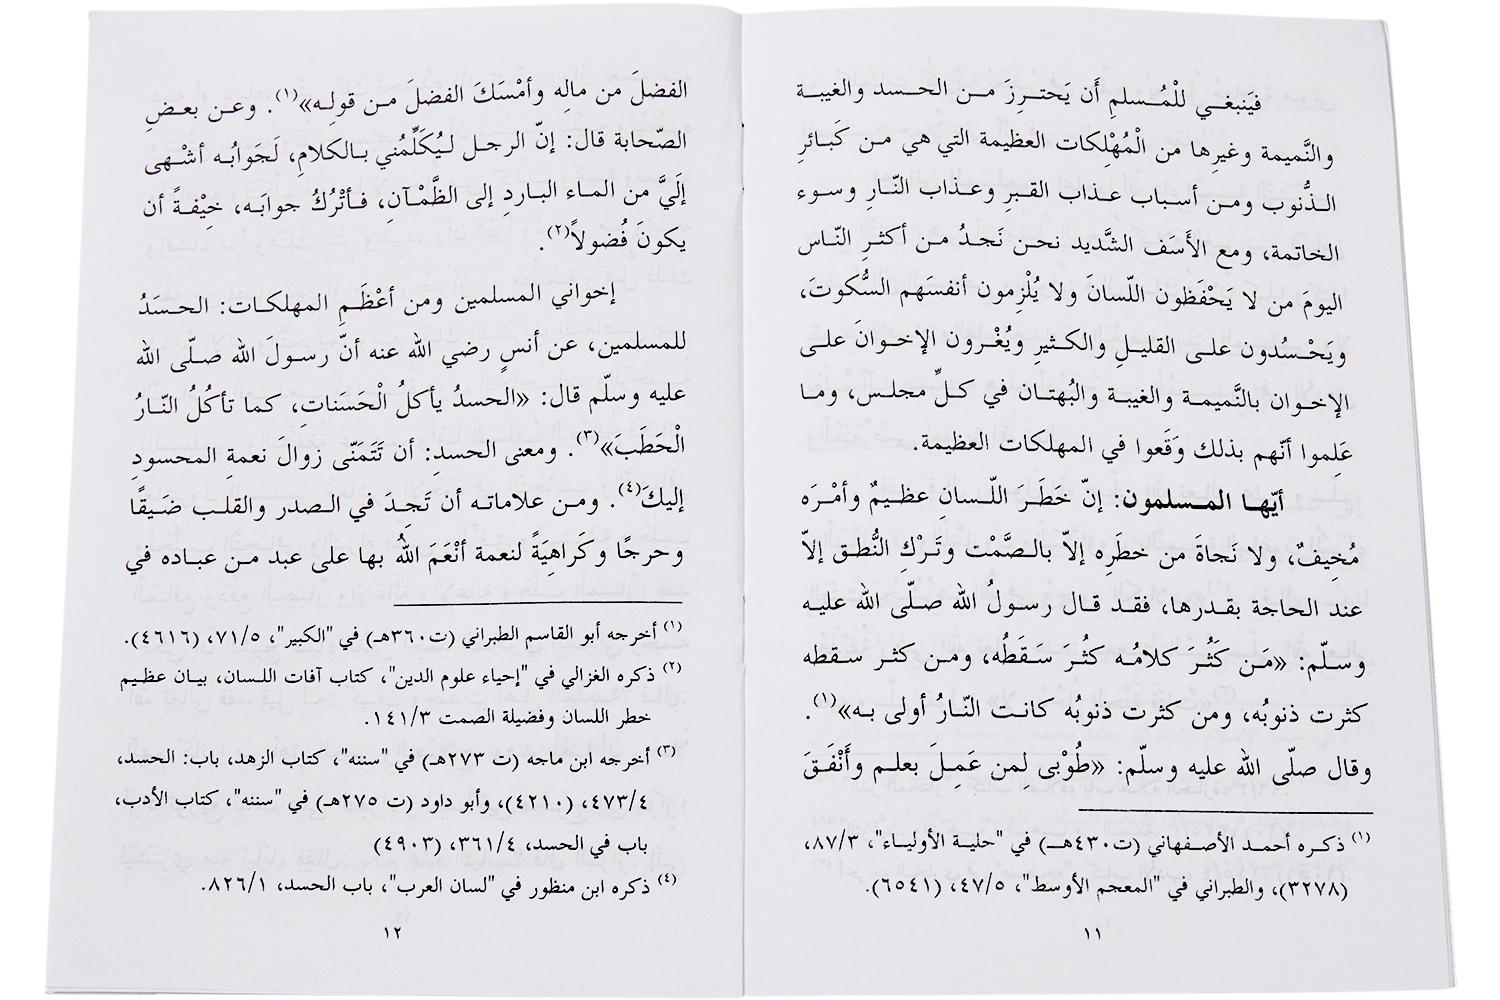 فيَنبغي للْمُسلمِ أَن يَحترِزَ من الحسد والغيبة
والنَّميمة وغيرِها من الْمُهْلِكات العظيمة التي هي من كَبائرِ
الذُّنوب ومن أسباب عذاب القبرِ وعذاب النّارِ وسوء
الخاتمة، ومع الأَسَف الشَّديد نحن نَجدُ من أكثرِ النّاس
اليومَ من لا يَحْفَظون اللّسانَ ولا يُلْزِمون أنفسَهم السُّكوتَ،
ويَحْسُدون على القليلِ والكثيرِ ويُغْرون الإخوانَ على
الإخوان بالنَّميمة والغيبة والبُهتان في كلِّ مجلس، وما
عَلِموا أنّهم بذلك وَقَعوا في المهلكات العظيمة.
أيّها المسلمون: إنّ خَطَرَ اللّسانِ عظيمٌ وأمْرَه
مُخِيفٌ، ولا نَجاةَ من خطَرِه إلاّ بالصَّمْت وتَرْكِ النُّطق إلاّ
عند الحاجة بقدرها، فقد قال رسولُ الله صلّى الله عليه
وسلّم: «مَن كَثُرَ كلامُه كثُرَ سَقَطُه، ومن كثر سقطه
كثرت ذنوبُه، ومن كثرت ذنوبُه كانت النّارُ أولى به»(١).
وقال صلّى الله عليه وسلّم: «طُوْبى لِمن عَمِلَ بعلم وأَنْفَقَ
(١) ذكره أحمد الأصفهاني (ت٤٣٠هـ) في "حلية الأولياء"، ٨٧/٣،
(٣٢٧٨)، والطبراني في "المعجم الأوسط"، ٤٧/٥، (٦٥٤١).
١١
الفضلَ من مالِه وأمْسَكَ الفضلَ من قولِه»(١). وعن بعضِ
الصّحابة قال: إنّ الرجل ليُكَلِّمُني بالكلامِ، لَجَوابُه أشْهى
إلَيَّ من الماء الباردِ إلى الظَّمْآنِ، فأتْرُكُ جوابَه، خِيْفةً أن
يكونَ فُضولاً(٢).
إخواني المسلمين ومن أعْظَمِ المهلكات: الحسَدُ
للمسلمين، عن أنسٍ رضي الله عنه أنّ رسولَ الله صلّى الله
عليه وسلّم قال: «الحسدُ يأكلُ الْحَسَناتِ، كما تأكُلُ النّارُ
الْحَطَبَ»(٣). ومعنى الحسدِ: أن تَتَمَنّى زوالَ نعمةِ المحسودِ
إليكَ(٤). ومن علاماته أن تَجِدَ في الصدر والقلب ضَيقًا
وحرجًا وكَراهِيَةً لنعمة أنْعَمَ اللهُ بها على عبد من عباده في
(١) أخرجه أبو القاسم الطبراني (ت٣٦٠هـ) في "الكبير"، ٧١/٥، (٤٦١٦).
(٢) ذكره الغزالي في "إحياء علوم الدين"، كتاب آفات اللسان، بيان عظيم
خطر اللسان وفضيلة الصمت ١٤١/٣.
(٣) أخرجه ابن ماجه (ت ٢٧٣هـ) في "سننه"، كتاب الزهد، باب: الحسد،
٤٧٣/٤، (٤٢١٠)، وأبو داود (ت ٢٧٥هـ) في "سننه"، كتاب الأدب،
باب في الحسد، ٣٦١/٤، (٤٩٠٣)
(٤) ذكره ابن منظور في "لسان العرب"، باب الحسد، ٨٢٦/١.
١٢